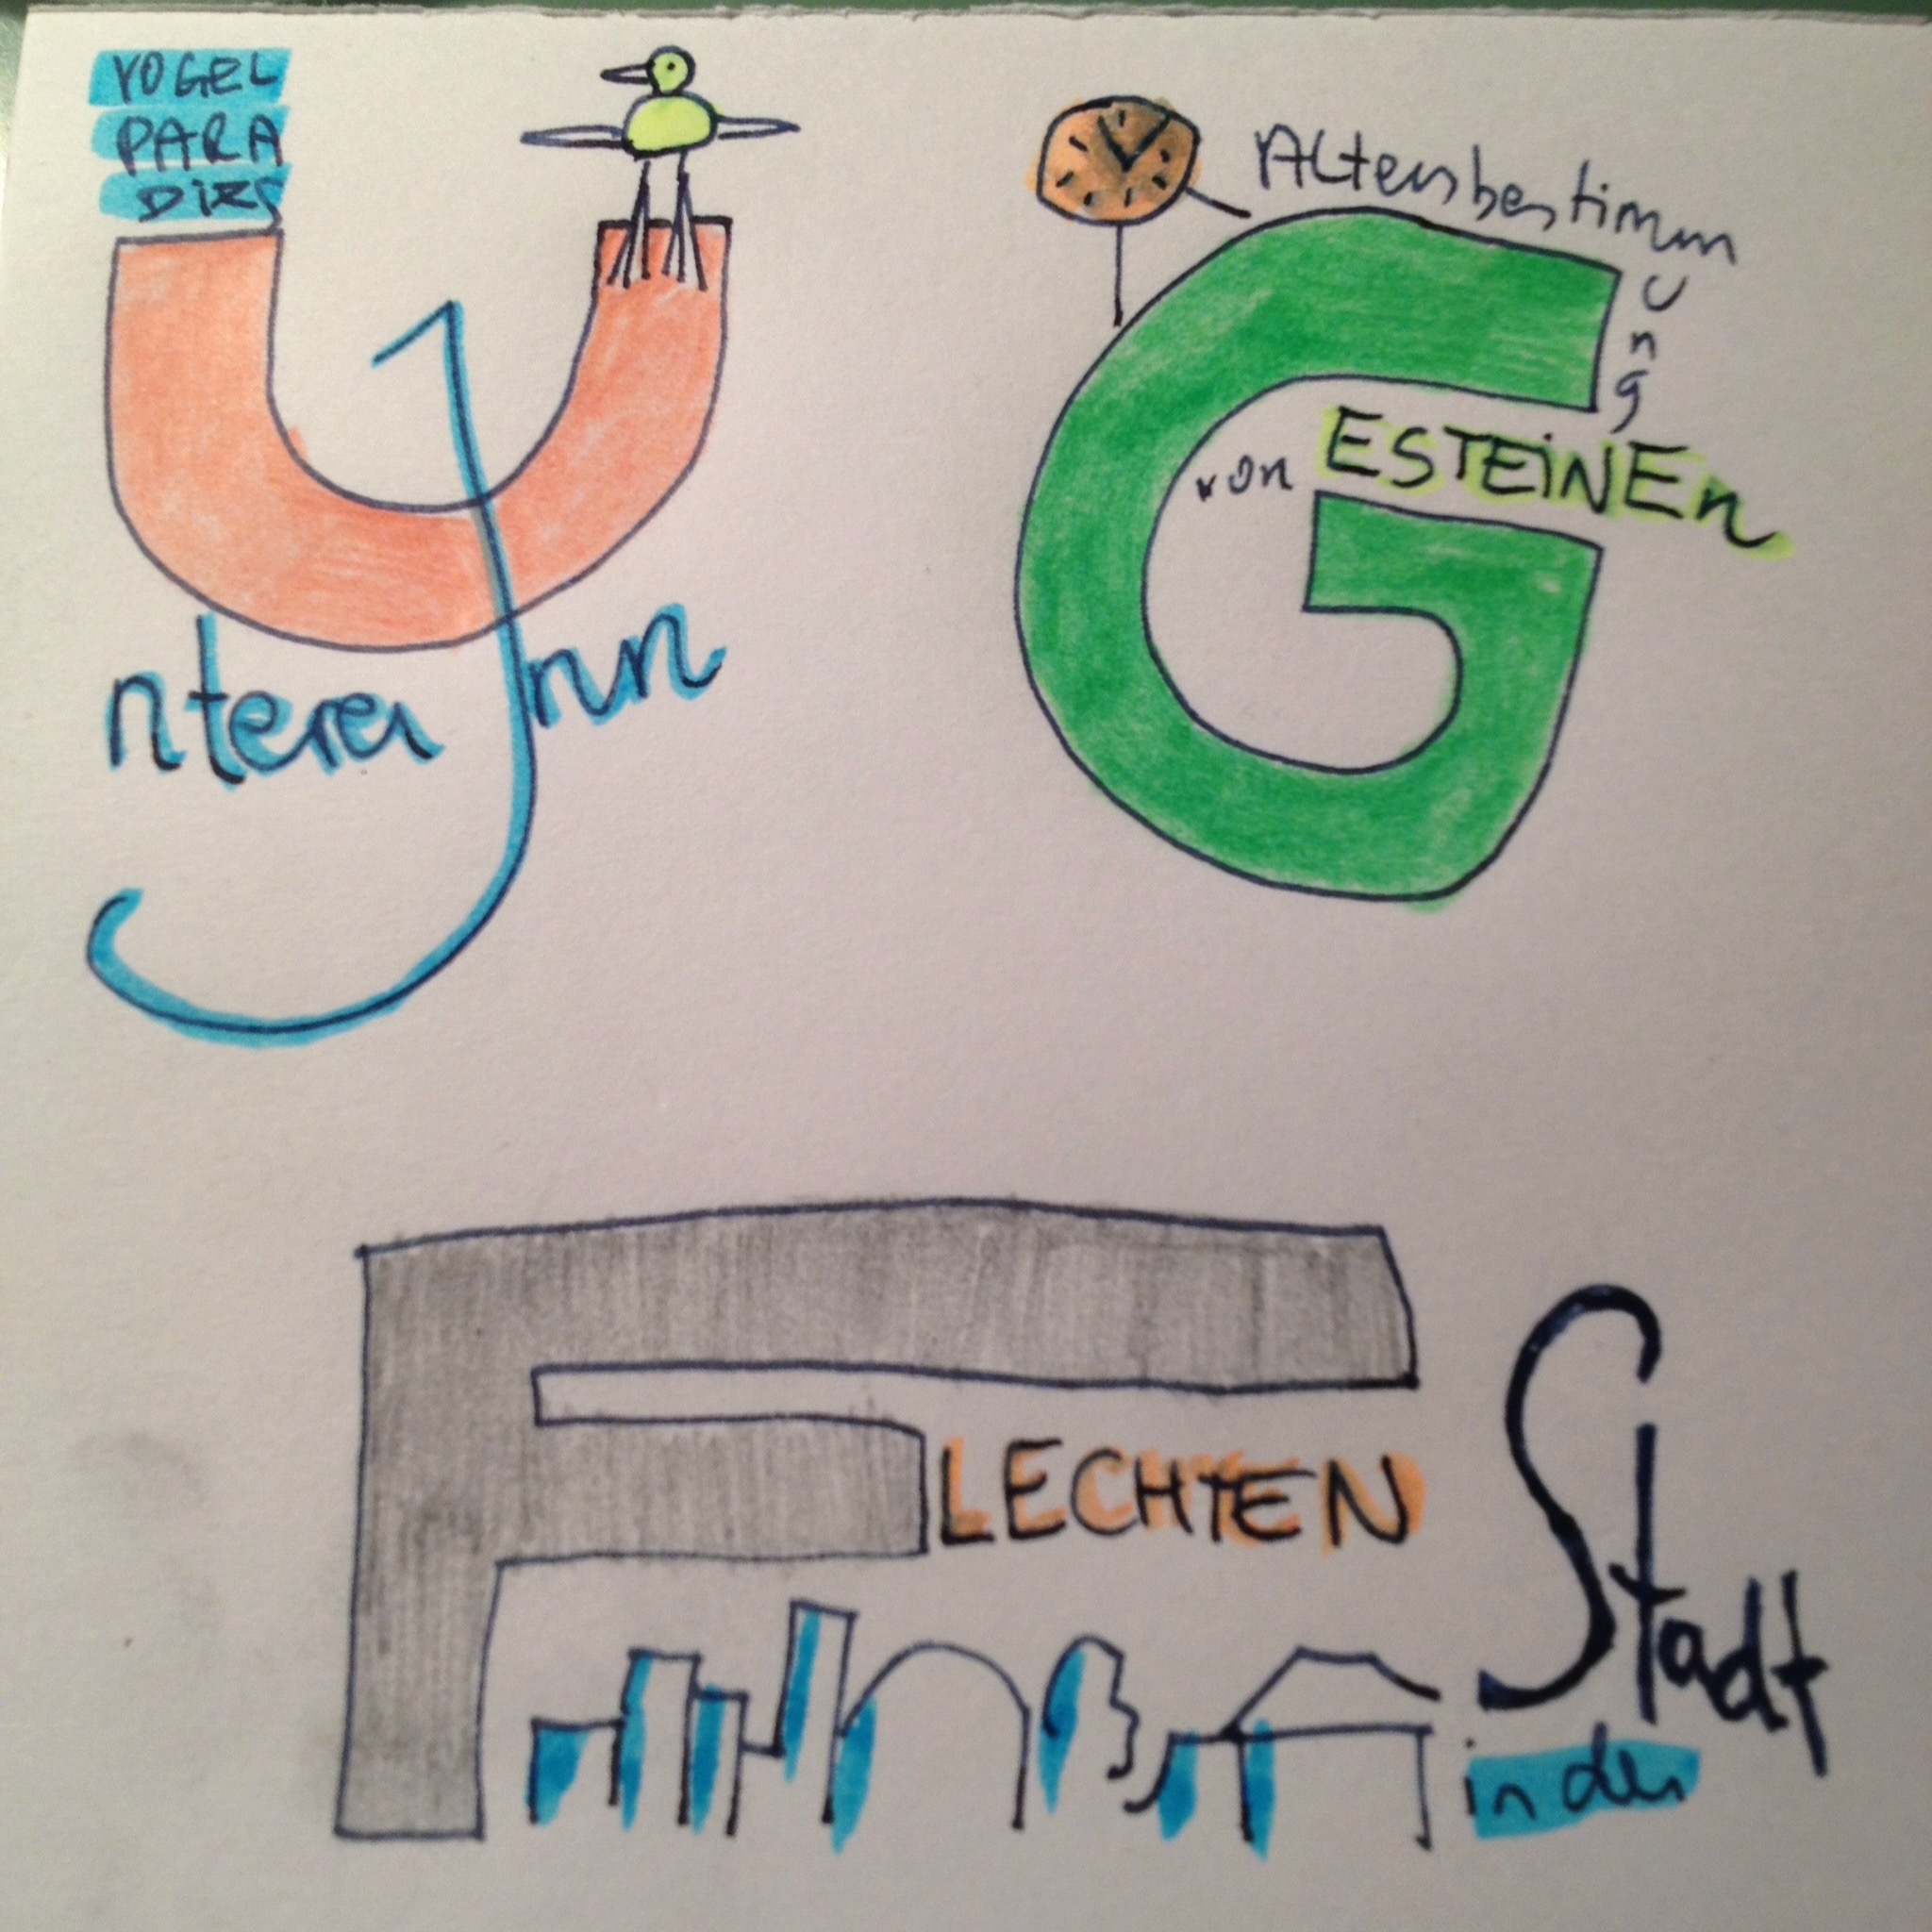 VOGEL
PARA
DIES
Unterer Inn
Altersbestimmung
von GESTEINEn
FLECHTEN
in der Stadt